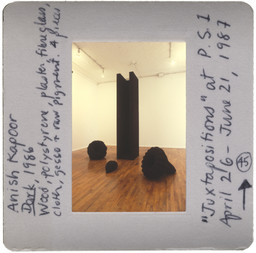 Anish Kapoor
Dark, 1986
Wood, polystyrene, plaster, fibreglass,
cloth, gesso + raw pigment. 4 pieces
"Juxtapositions" at P.S.1
April 26 - June 21, 1987
45